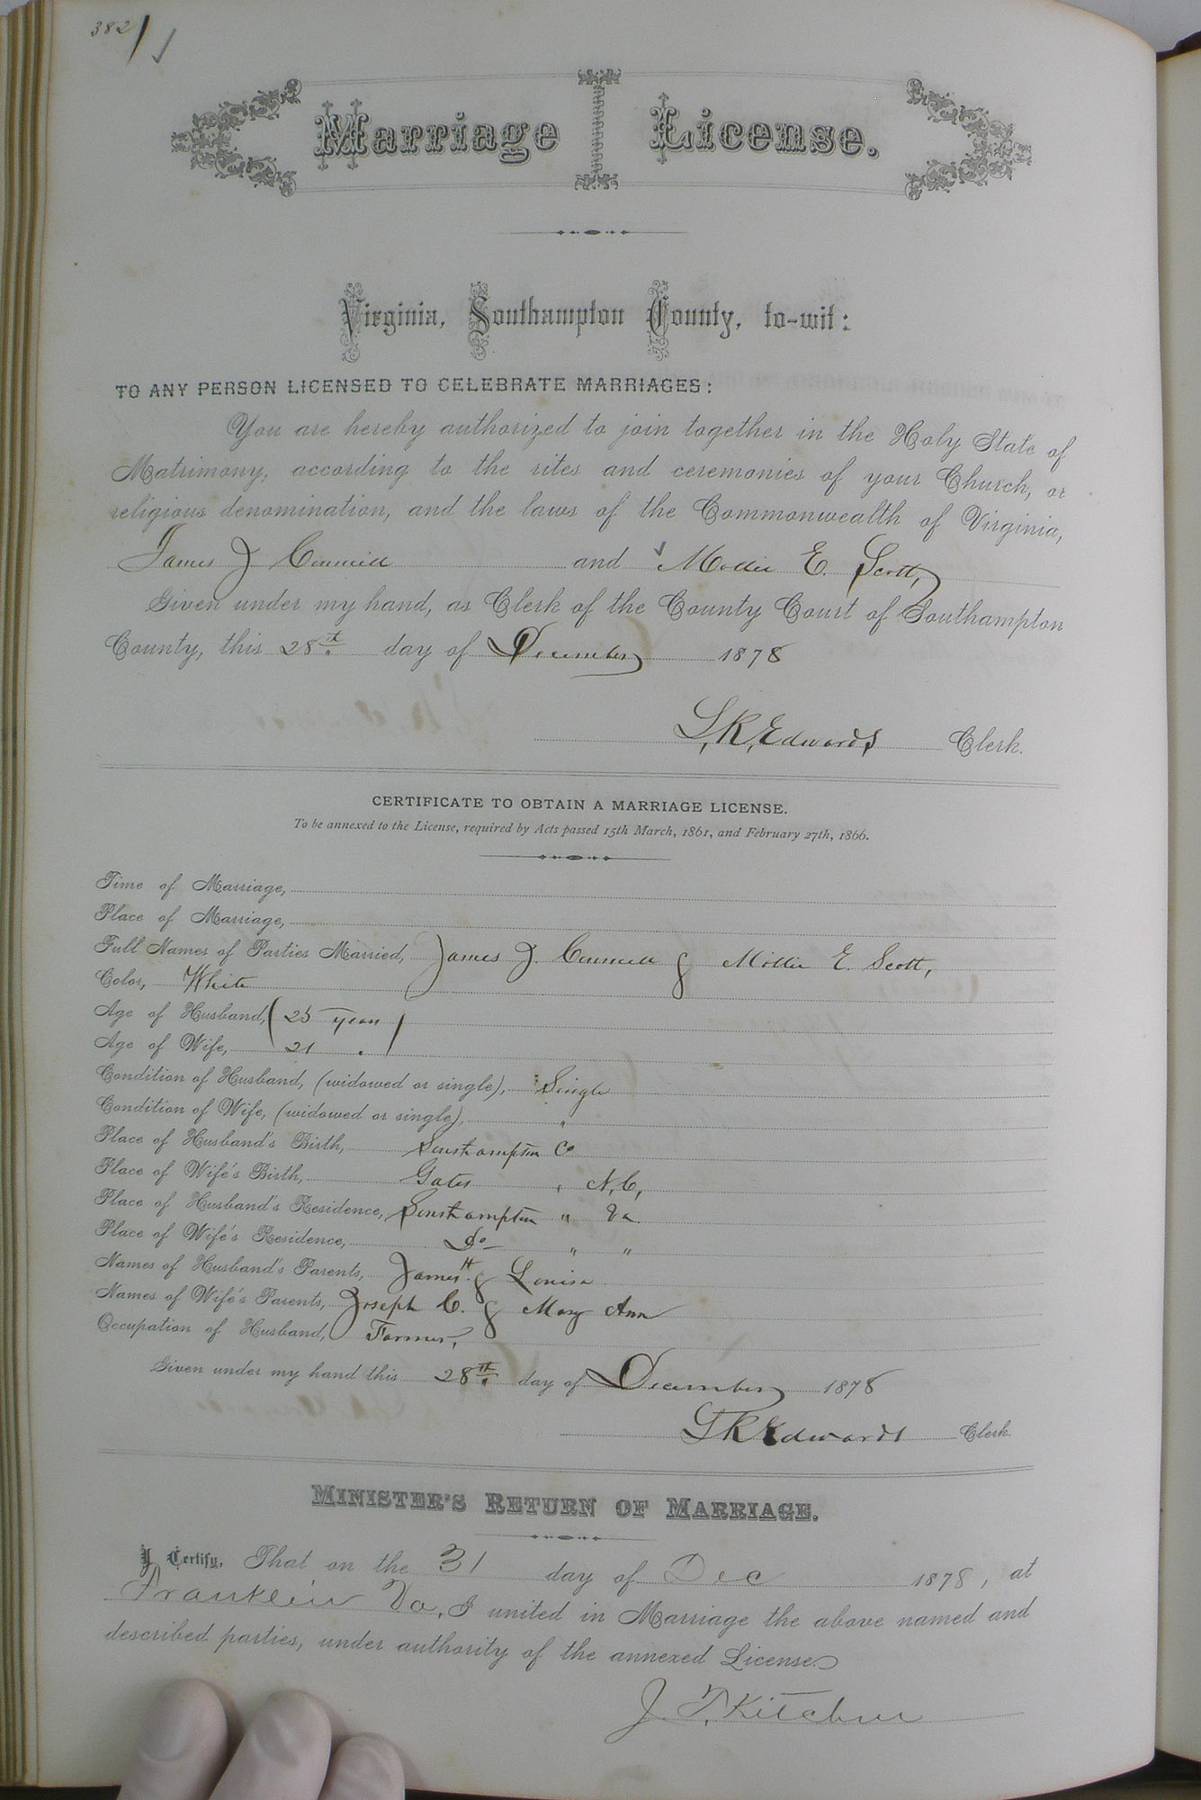 382
Marriage License.
Virginia, Southampton County, to-wit:
TO ANY PERSON LICENSED TO CELEBRATE MARRIAGES:
You are hereby authorized to join together in the Holy State of
Matrimony, according to the rites and ceremonies of your Church, or
religious denomination, and the laws of the Commonwealth of Virginia,
James J Councill and Mollie E. Scott,
Given under my hand, as Clerk of the County Court of Southampton
County, this 28th day of December 1878
L. R. Edwards Clerk.
CERTIFICATE TO OBTAIN A MARRIAGE LICENSE.
To be annexed to the License, required by Acts passed 15th March, 1861, and February 27th, 1866.
Time of Marriage,
Place of Marriage,
Full Names of Parties Married, James J. Councill & Mollie E. Scott,
Color, White
Age of Husband, 25 years
Age of Wife, 21 "
Condition of Husband, (widowed or single), Single
Condition of Wife, (widowed or single), "
Place of Husband's Birth, Southampton Co
Place of Wife's Birth, Gates " N.C.,
Place of Husband's Residence, Southampton " Va.
Place of Wife's Residence, Do " "
Names of Husband's Parents, James H. & Louisa
Names of Wife's Parents, Joseph C. & Mary Ann
Occupation of Husband, Farmer,
Given under my hand this 28th day of December 1878
L R Edwards Clerk.
MINISTER'S RETURN OF MARRIAGE.
I Certify, That on the 31 day of Dec 1878, at
Franklin Va, I united in Marriage the above named and
described parties, under authority of the annexed License.
J. T. Kitchen